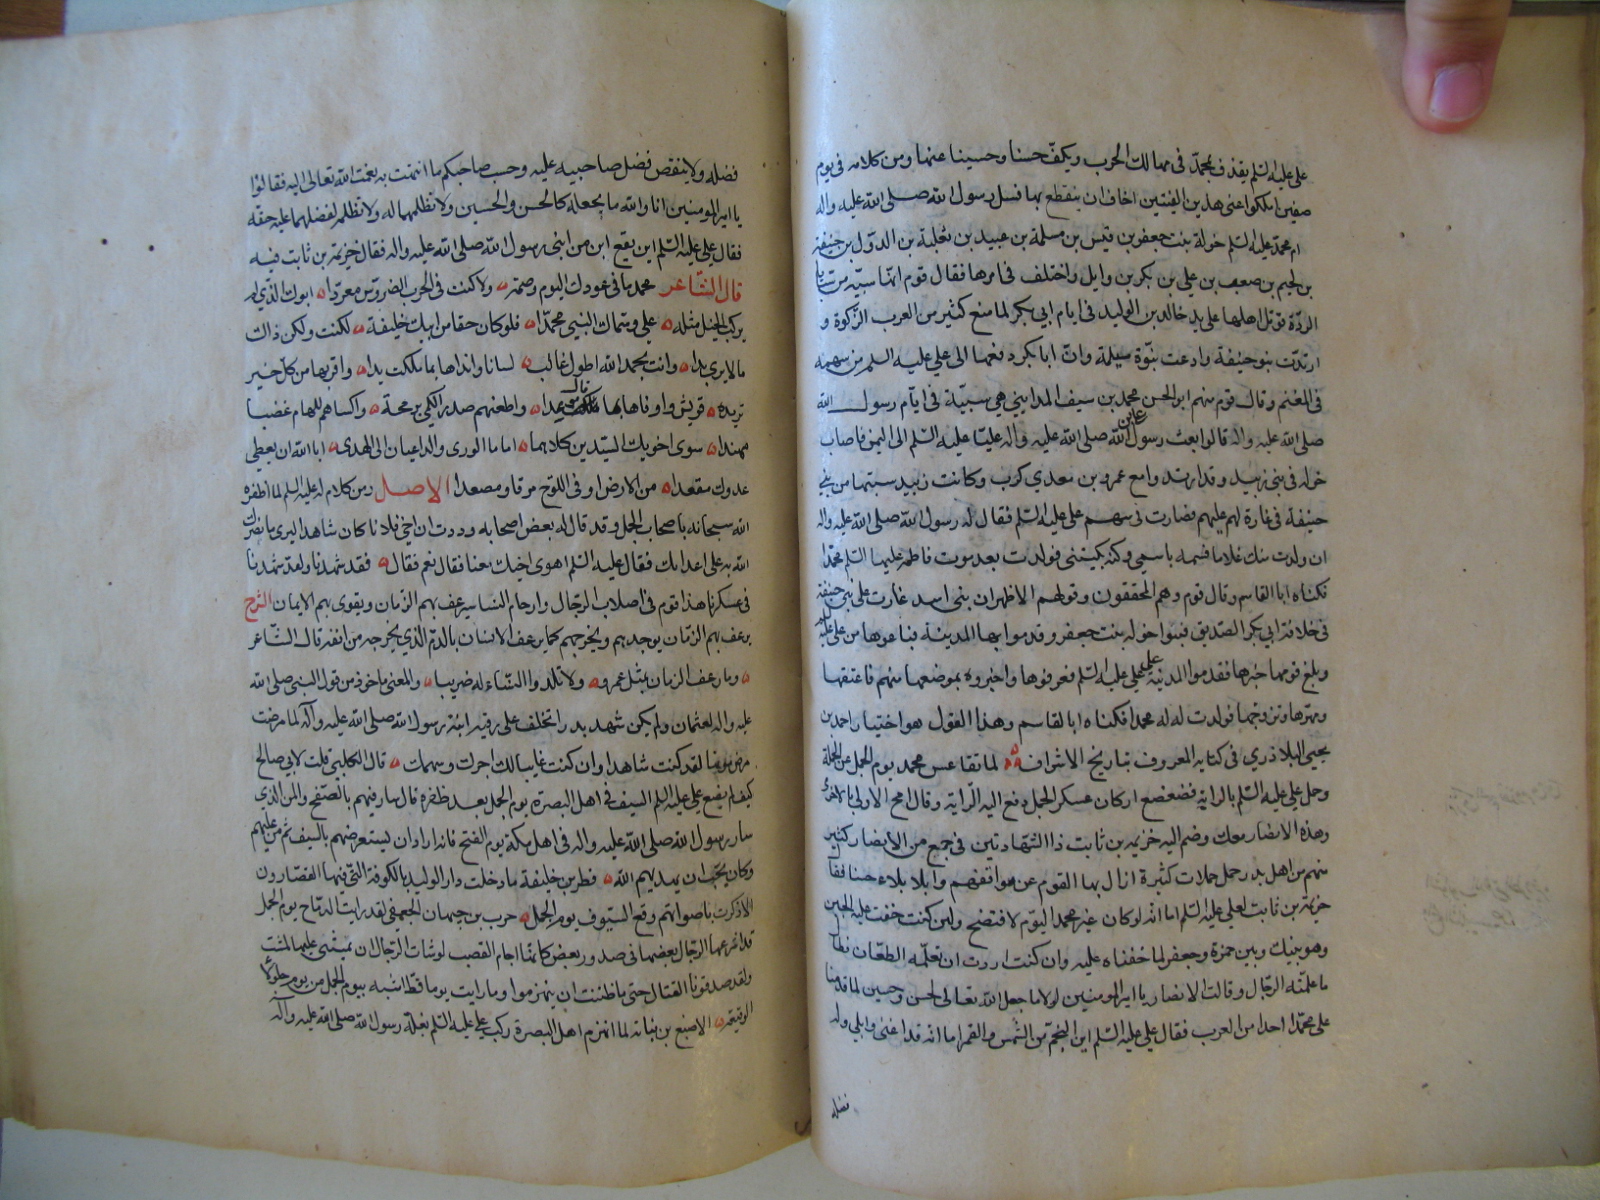 علي عليه السلم يقذف بمحمد في مهالك الحرب ويكف حسنا وحسينا عنها ومن كلامه في يوم
صفين املكوا عني هذين الفتين اخاف ان ينقطع بهما نسل رسول الله صلى الله عليه واله
ام محمد عليه السلم خولة بنت جعفر بن قيس بن مسلمة بن عبيد بن ثعلبة بن الدول بن حنيفة
بن لجيم بن صعب بن علي بن بكر بن وايل واختلف في امرها فقال قوم انها سبية من سبايا
الردة قوتل اهلها على يد خالد بن الوليد في ايام ابي بكر لما منع كثير من العرب الزكوة و
ارتدت بنو حنيفة وادعت نبوة مسيلمة وان ابا بكر دفعها الى علي عليه السلم من سهمه
في المغنم وقال قوم منهم ابو الحسن محمد بن سيف المدايني هي سبية في ايام رسول الله
صلى الله عليه واله قالوا بعث رسول الله صلى الله عليه واله عليا عليه السلم الى اليمن فاصاب
خوله في بني زبيد وقد ارتدوا مع عمرو بن معدي كرب وكانت زبيد سبتها من بني
حنيفة في غارة لهم عليهم فصارت في سهم علي عليه السلم فقال له رسول الله صلى الله عليه واله
ان ولدت منك غلاما فسمه باسمي وكنه بكنيتي فولدت بعد موت فاطمة عليها السلم محمدا
فكناه ابا القاسم وقال قوم وهم المحققون وقولهم الاظهر ان بني اسد غارت على بني حنيفة
في خلافة ابي بكر الصديق فسبوا خوله بنت جعفر وقدموا بها المدينة فباعوها من علي عليه
وبلغ قومها خبرها فقدموا المدينة على علي عليه السلم فعرفوها واخبروه بموضعها منهم فاعتقها
ومهرها وتزوجها فولدت له محمدا فكناه ابا القاسم وهذا القول هو اختيار احمد بن
يحيى البلاذري في كتابه المعروف بتاريخ الاشراف لما تقاعس محمد يوم الجمل عن الحملة
وحمل علي عليه السلم بالراية فضعضع اركان عسكر الجمل دفع اليه الراية وقال امح الاولى بالاخرى
وهذه الانصار معك وضم اليه خزيمه بن ثابت ذا الشهادتين في جمع من الانصار كثير
منهم من اهل بدر حمل حملات كثيرة ازال بها القوم عن مواقفهم وابلا بلاء حسنا فقال
خزيمة بن ثابت لعلي عليه السلم اما انه لو كان غير محمد اليوم لافتضح ولين كنت خفت عليه الجبن
وهو بينك وبين حمزة وجعفر لما خفناه عليه وان كنت اردت ان تعلمه الطعان فطال
ما علمته الرجال وقالت الانصار يا امير المومنين لولا ما جعل الله تعالى لحسن وحسين لما قدمنا
على محمدا احدا من العرب فقال علي عليه السلم اين النجم من الشمس والقمر اما انه قد اغنى وابلى وله
فضله
فضله ولا ينقص فضل صاحبيه عليه وحسب صاحبكم ما انتهت به نعمت الله تعالى اليه فقالوا
يا امير المومنين انا والله ما نجعله كالحسن والحسين ولا نظلمهما له ولا نظلمه لفضلهما عليه حقه
فقال علي عليه السلم اين يقع ابني من ابني رسول الله صلى الله عليه واله فقال خزيمة بن ثابت فيه
قال الشاعر محمد ما في عودك اليوم وصمة ولا كنت في الحرب الضروس معردا ابوك الذي لم
يركب الخيل مثله علي وسماك النبي محمدا فلو كان حقا من ابيك خليفة لكنت ولكن ذاك
ما لا يرى بدا وانت بحمد الله اطول غالب لسانا وانداها بما ملكت يدا واقربها من كل خير
تريده قريش واوفاها بما قال موعدا واطعنهم صدر الكمي برمحه واكساهم للهام عضبا
مهندا سوى اخويك السيدين كلاهما اماما الورى والداعيان الى الهدى ابا الله ان يعطي
عدوك مقعدا من الارض او في اللوح مرقا ومصعدا الاصل ومن كلام له عليه السلم لما اظفره
الله سبحانه باصحاب الجمل وقد قال له بعض اصحابه وددت ان اخي فلانا كان شاهدا ليرى ما نصرك
الله به على اعدائك فقال عليه السلم اهوى اخيك معنا فقال نعم فقال فقد شهدنا ولقد شهدنا
في عسكرنا هذا قوم في اصلاب الرجال وارحام النسا سيرعف بهم الزمان ويقوى بهم الايمان الشرح
يرعف بهم الزمان يوجدهم ويخرجهم كما يرعف الانسان بالدم الذي يخرجه من انفه قال الشاعر
وما رعف الزمان بمثل عمرو ولا تلد النساء له ضريبا والمعنى ماخوذ من قول النبي صلى الله
عليه واله لعثمان ولم يكن شهد بدرا تخلف على رقيه ابنة رسول الله صلى الله عليه وآله لما مرضت
مرض موتها لقد كنت شاهدا وان كنت غايبا لك اجرك وسهمك قال الكلبي قلت لابي صالح
كيف لم يضع علي عليه السلم السيف في اهل البصرة يوم الجمل بعد ظفره قال سار فيهم بالصفح والمن الذي
سار رسول الله صلى الله عليه واله في اهل مكة يوم الفتح فانه اراد ان يستعرضهم بالسيف ثم من عليهم
وكان يحب ان يهديهم الله فطر بن خليفة ما دخلت دار الوليد بالكوفة التي فيها القصارون
الا ذكرت باصواتهم وقع السيوف يوم الجمل حرب بن جيهان الجعفي لقد رايت الرماح يوم الجمل
قد اشرعها الرجال بعضها في صدور بعض كانها اجام القصب لو شات الرجال ان تمشي عليها لمشت
ولقد صدقونا القتال حتى ما ظننت ان ينهزموا وما رايت يوما قط اشبه بيوم الجمل من يوم جلولا
الوقيعه الاصبغ بن نباته لما انهزم اهل البصرة ركب علي عليه السلم بغلة رسول الله صلى الله عليه وآله